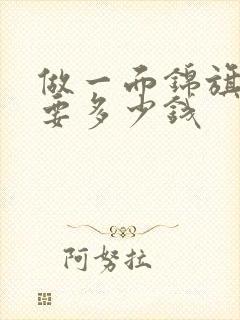 做一而錦旗
要多少錢
阿努拉